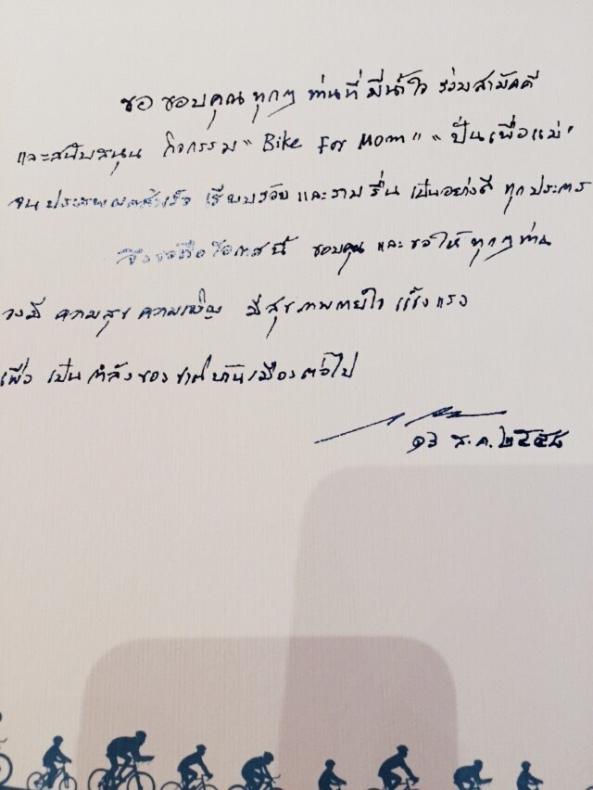 ขอ ขอบคุณ ทุกๆ ท่านที่ มีน้ำใจ ร่วมสามัคคี
และสนับสนุน กิจกรรม "Bike For Mom" "ปั่นเพื่อแม่"
จนประสพผลสำเร็จ เรียบร้อย และราบรื่น เป็นอย่างดี ทุกประการ
จึงขอถือโอกาสนี้ ขอบคุณ และ ขอให้ ทุกๆ ท่าน
จงมี ความสุข ความเจริญ มีสุขภาพกายใจ แข็งแรง
เพื่อ เป็นกำลังของชาติบ้านเมืองต่อไป
๑๖ ส.ค. ๒๕๕๘